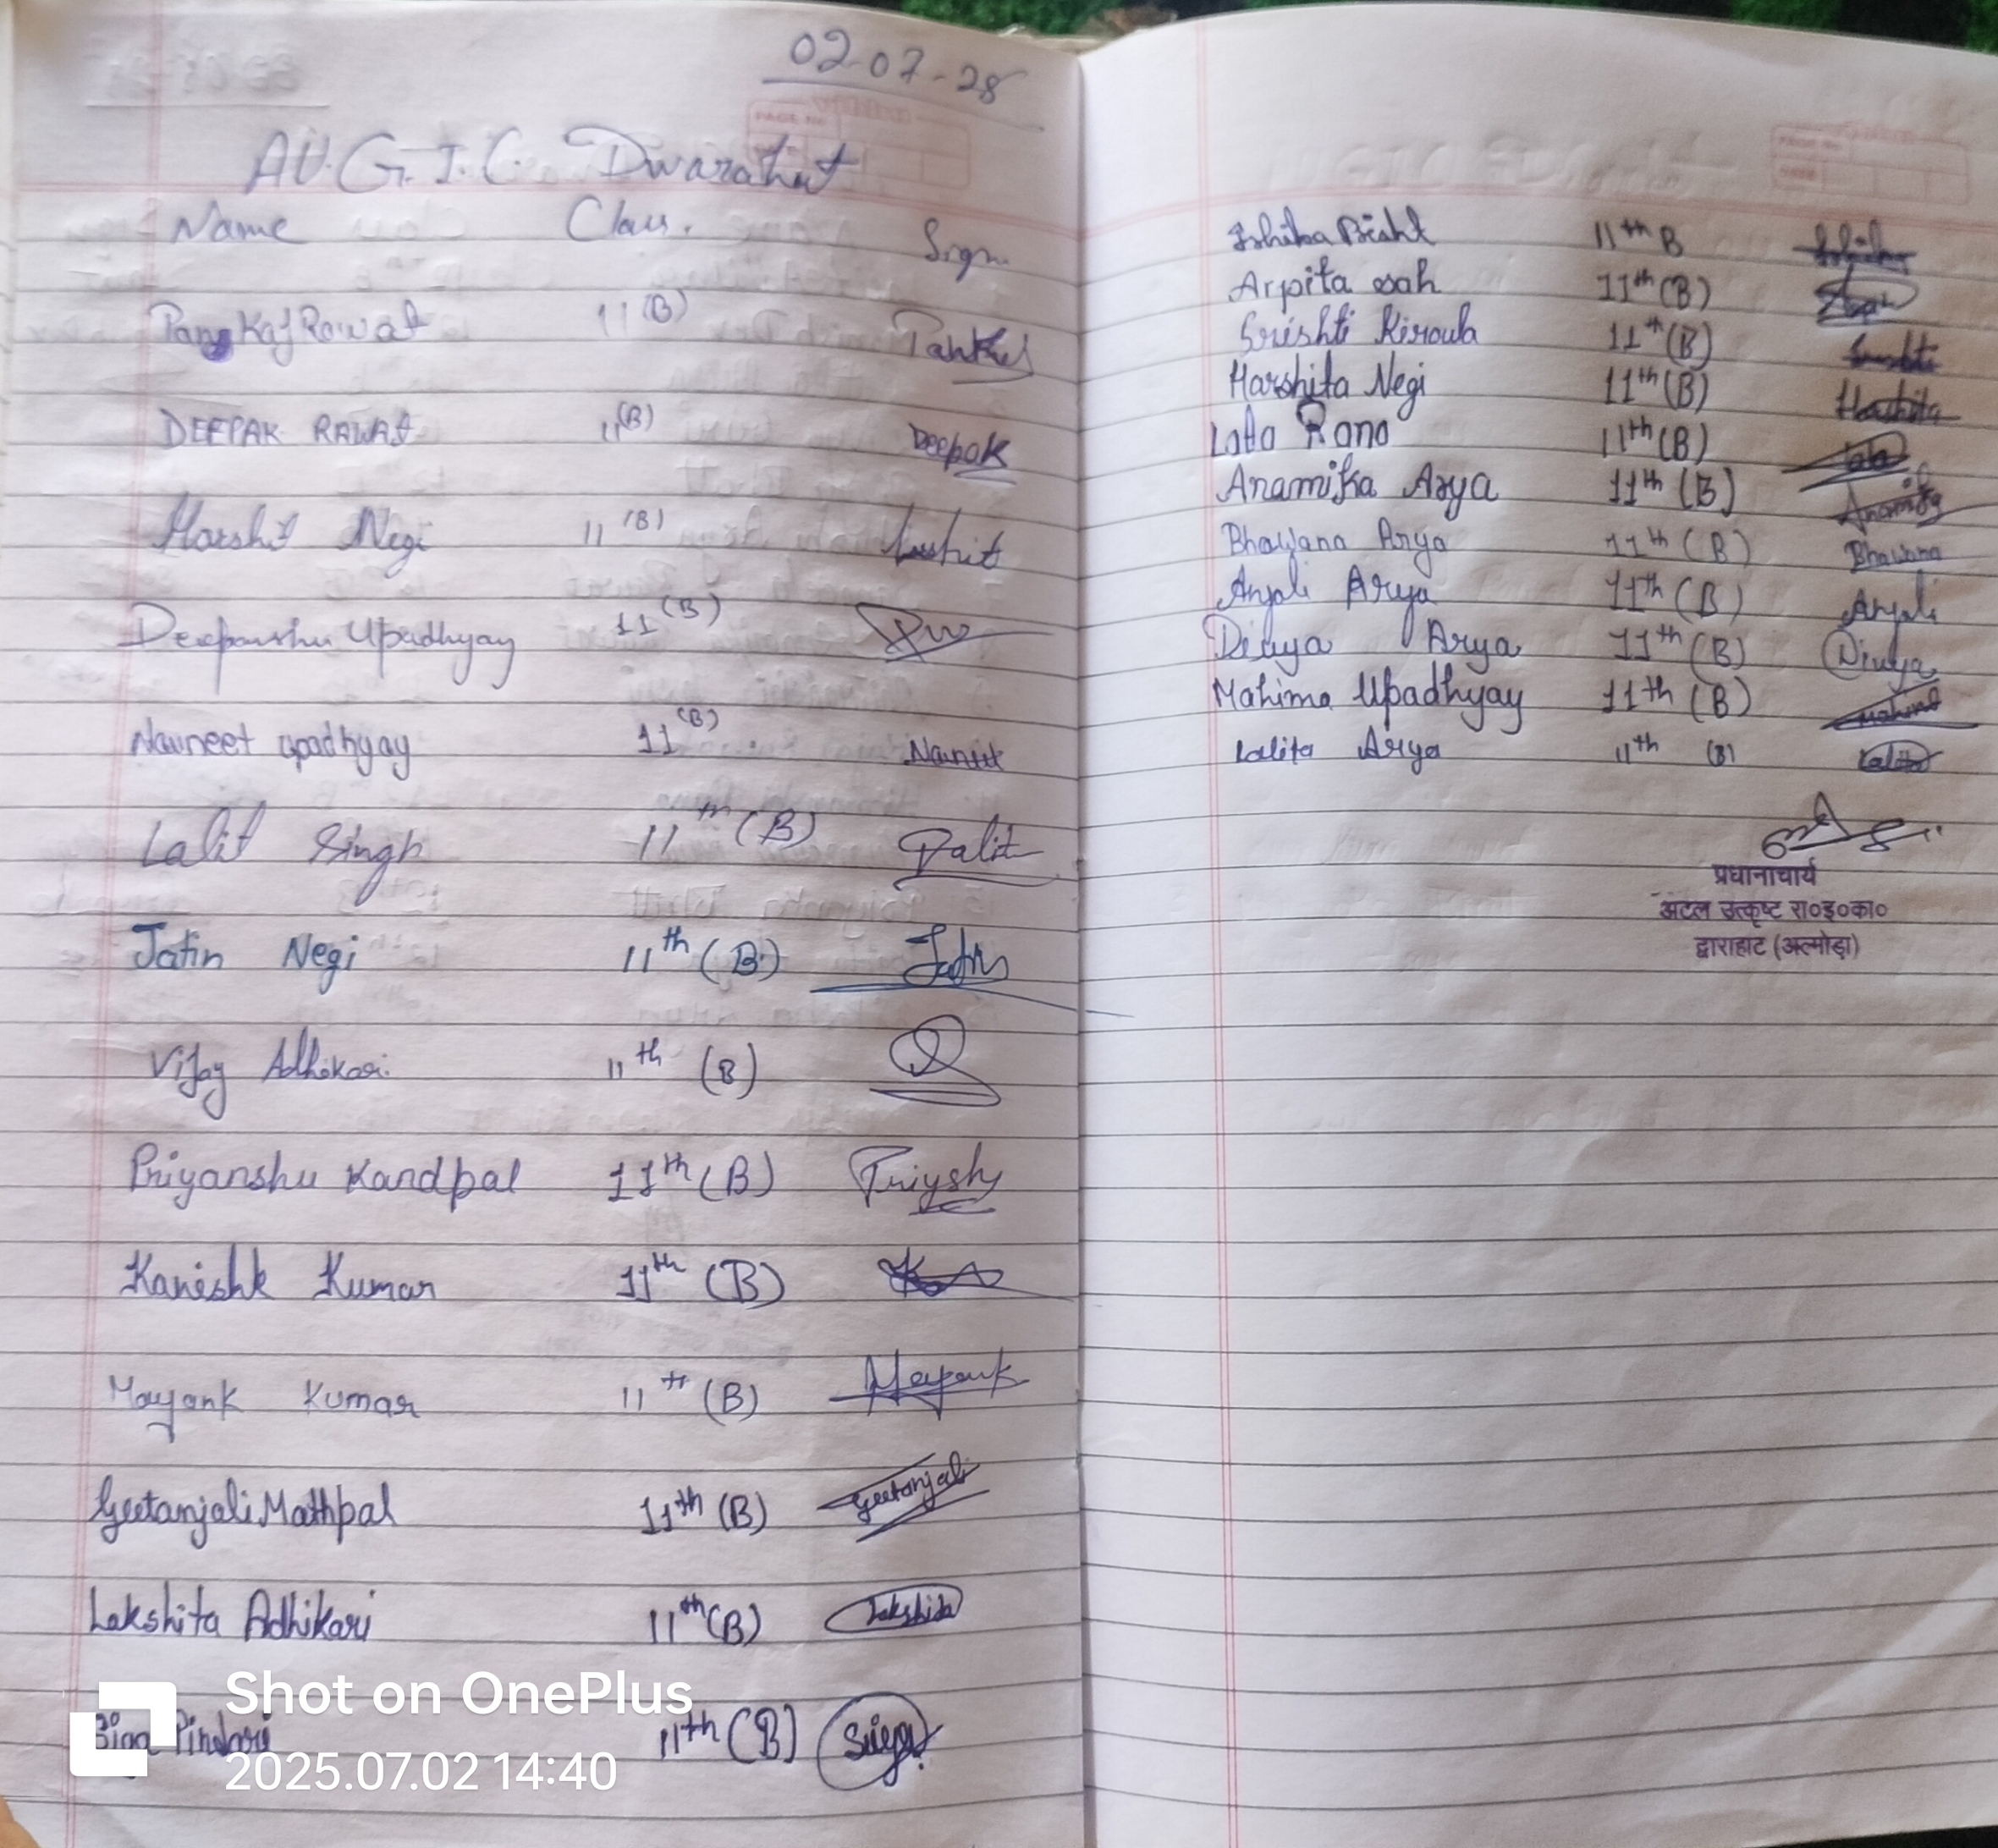 02-07-25
A.U.G.I.C. Dwarahat
Name Class. Sign.
Pankaj Rawat 11 (B) Pankaj
DEEPAK RAWAT 11 (B) Deepak
Harshit Negi 11 (B) Harshit
Deepanshu Upadhyay 11 (B)
Navneet upadhyay 11 (B) Navneet
Lalit Singh 11th (B) Lalit
Jatin Negi 11th (B) Jatin
Vijay Adhikari 11th (B)
Priyanshu Kandpal 11th (B) Priyshu
Kanishk Kumar 11th (B)
Mayank Kumar 11th (B) Mayank
Geetanjali Mathpal 11th (B) Geetanjali
Lakshita Adhikari 11th (B) Lakshita
Pindari 11th (B)
Shot on OnePlus
2025.07.02 14:40
Ishika Bisht 11th B Ishika
Arpita sah 11th (B)
Srishti Kiroula 11th (B) Srishti
Harshita Negi 11th (B) Harshita
Lata Rana 11th (B) Lata
Anamika Arya 11th (B) Anamika
Bhawana Arya 11th (B) Bhawana
Anjali Arya 11th (B) Anjali
Divya Arya 11th (B) Divya
Mahima Upadhyay 11th (B) Mahima
Lalita Arya 11th (B) Lalita
प्रधानाचार्य
अटल उत्कृष्ट रा०इ०का०
द्वाराहाट (अल्मोड़ा)